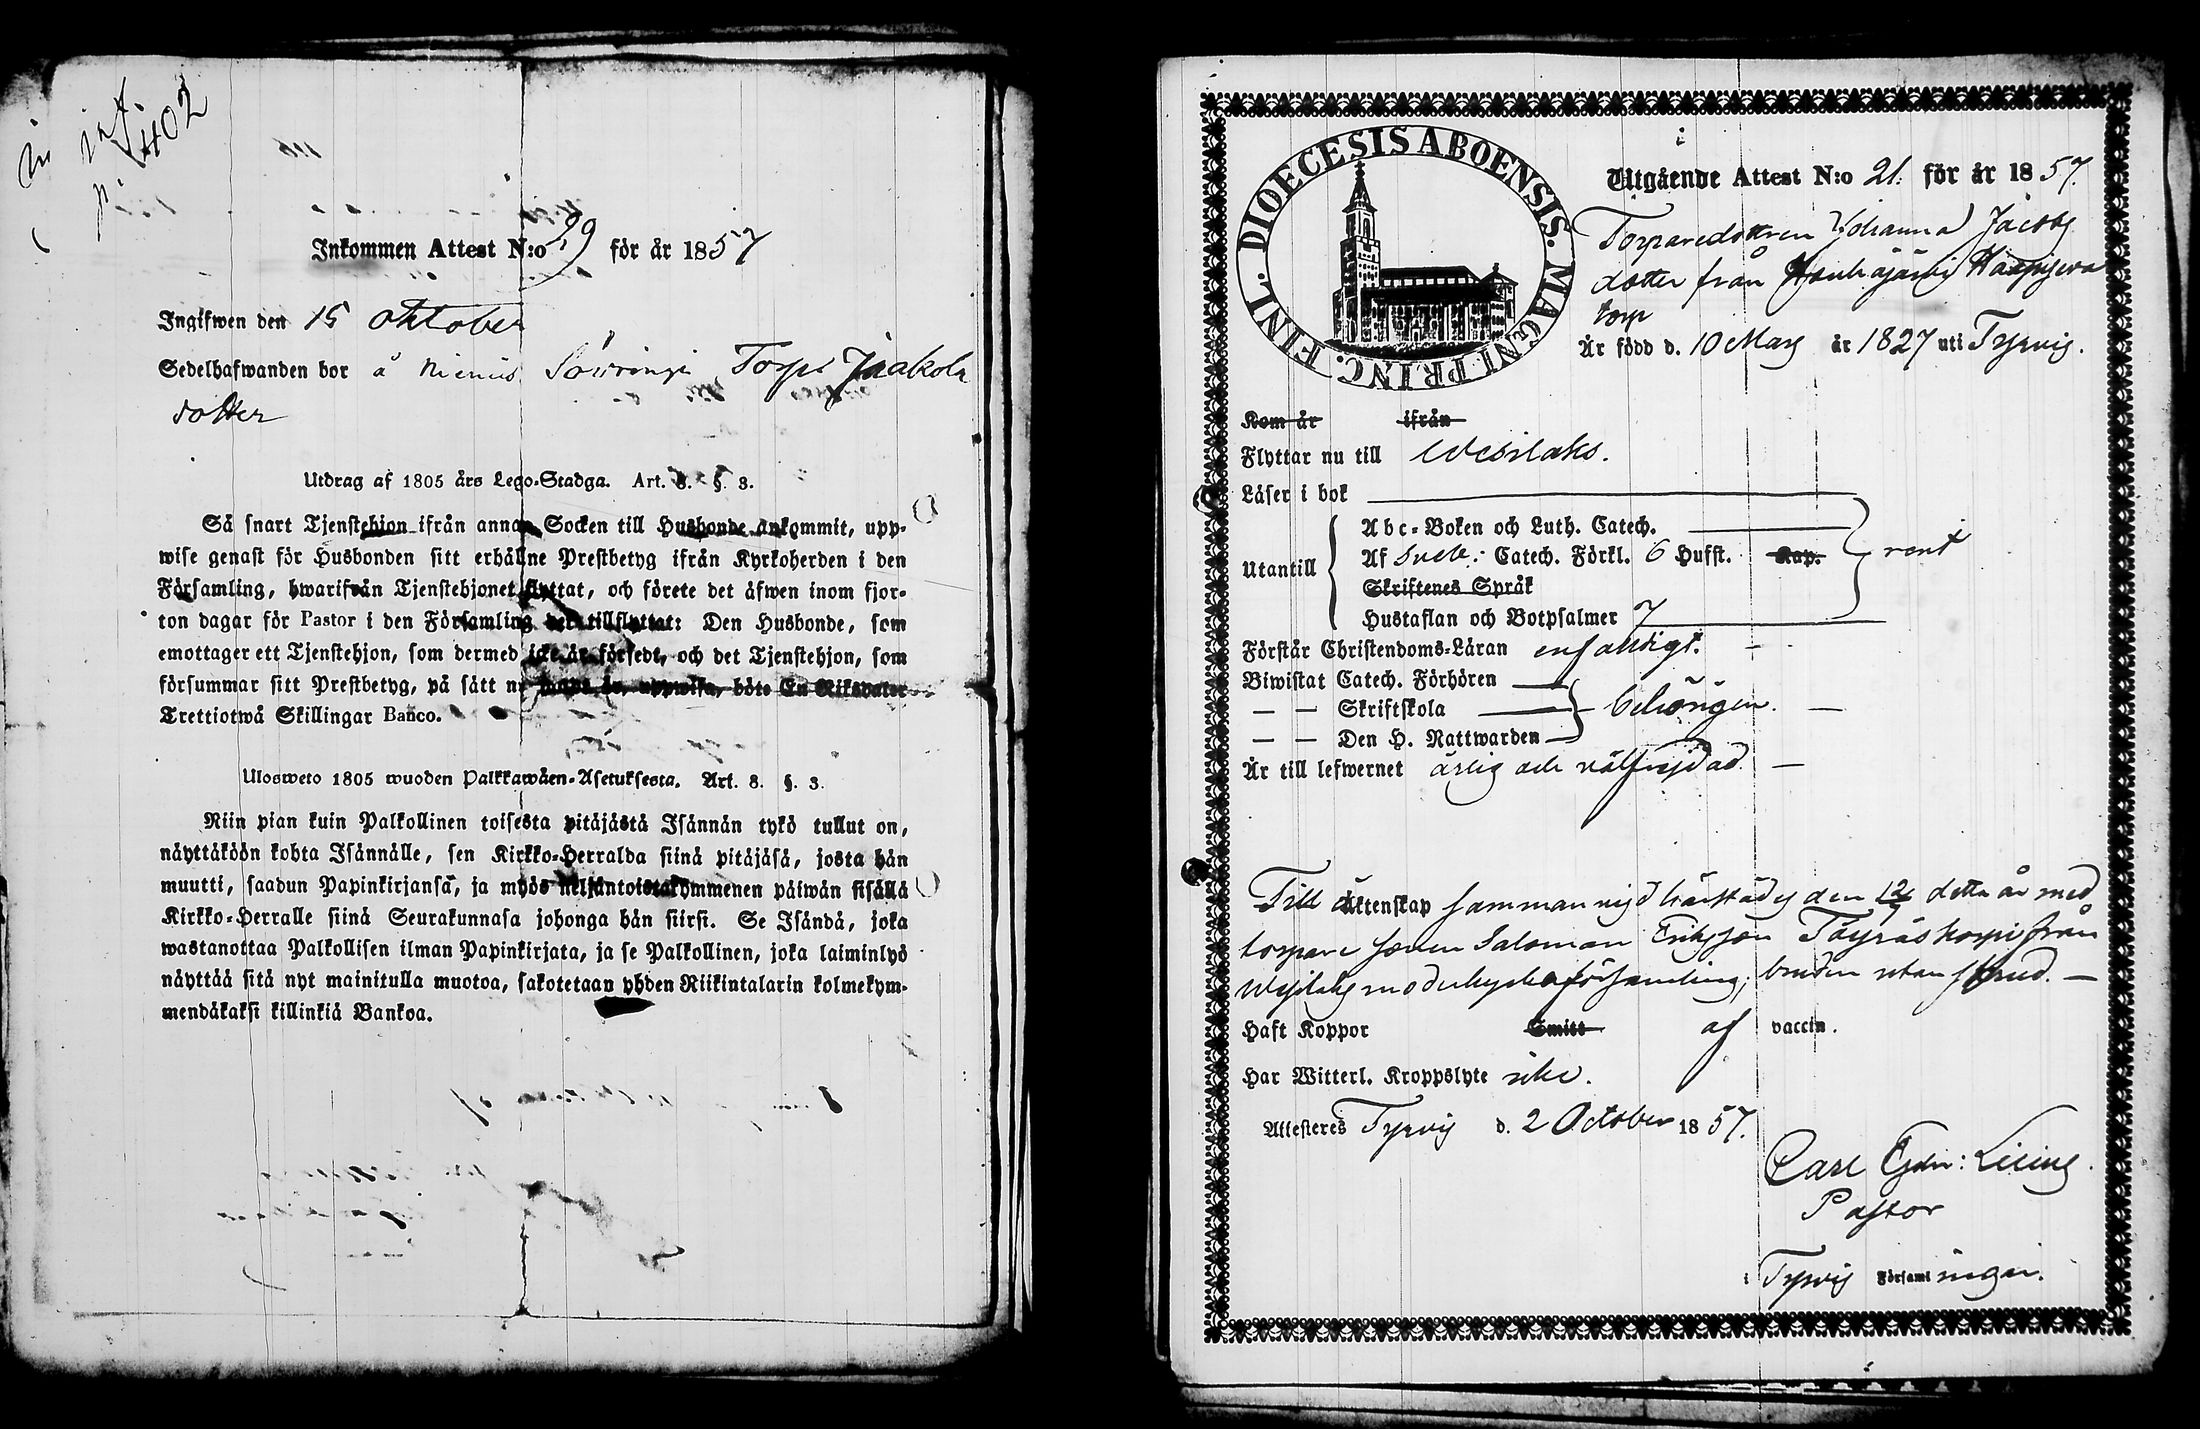 inf.
p. 402
Inkommen Attest N:o 29 för år 1857
Ingifwen den 15 Oktober
Sedelhafwanden bor å Torp Jaakola
dotter
Utdrag af 1805 års Lego-Stadga. Art. 8. §. 3.
Så snart Tjenstehjon ifrån annan Socken till Husbonde ankommit, upp-
wise genast för Husbonden sitt erhållne Prestbetyg ifrån Kyrkoherden i den
Församling, hwarifrån Tjenstehjonet flyttat, och förete det äfwen inom fjor-
ton dagar för Pastor i den Församling det tillflyttat: Den Husbonde, som
emottager ett Tjenstehjon, som dermed icke är försedt, och det Tjenstehjon, som
försummar sitt Prestbetyg, på sätt nu sagdt är, uppwisa, böte En Riksdaler
Trettiotwå Skillingar Banco.
Ulosweto 1805 wuoden Palkkawäen-Asetuksesta. Art. 8. §. 3.
Niin pian kuin Palkollinen toisesta pitäjästä Isännän tykö tullut on,
näyttäköön kohta Isännälle, sen Kirkko-Herralda siinä pitäjäsä, josta hän
muutti, saadun Papinkirjansa, ja myös neljäntoistakymmenen päiwän sisällä
Kirkko-Herralle siinä Seurakunnasa johonga hän siirsi. Se Isändä, joka
wastanottaa Palkollisen ilman Papinkirjata, ja se Palkollinen, joka laiminlyö
näyttää sitä nyt mainitulla muotoa, sakotetaan yhden Riikintalarin kolmekym-
mendäkaksi killinkiä Bankoa.
DIOECESIS ABOENSIS. MAGNI PRINC. FINL.
Utgående Attest N:o 21. för år 1857.
Torparedottren Johanna Jacobs
dotter från
torp
Är född d. 10 Mars år 1827 uti Tyrvis.
Kom år ifrån
Flyttar nu till Wesilaks.
Läser i bok
Utantill
Abc-Boken och Luth. Catech.
Af Sveb: Catech. Förkl. 6 Hufst. Kap.
Skriftenes Språk
Hustaflan och Botpsalmer 7
rent
Förstår Christendoms-Läran enfaldigt.
Biwistat Catech. Förhören
— — Skriftskola behörigen.
— — Den H. Nattwarden
Är till lefwernet ärlig och välfrejdad.
Till Äktenskap sammanvigd härstädes den 12/7 detta år med
torpare sonen Salomon Eriksson Töyräskorpi från
Wesilaks moderkyrkoförsamling; bruden utan skrud.
Haft Koppor Smitt af vaccin.
Har Witterl. Kroppslyte icke.
Attesteras Tyrvis d. 2 October 1857.
Carl
Pastor
i Tyrvis Församlingar.